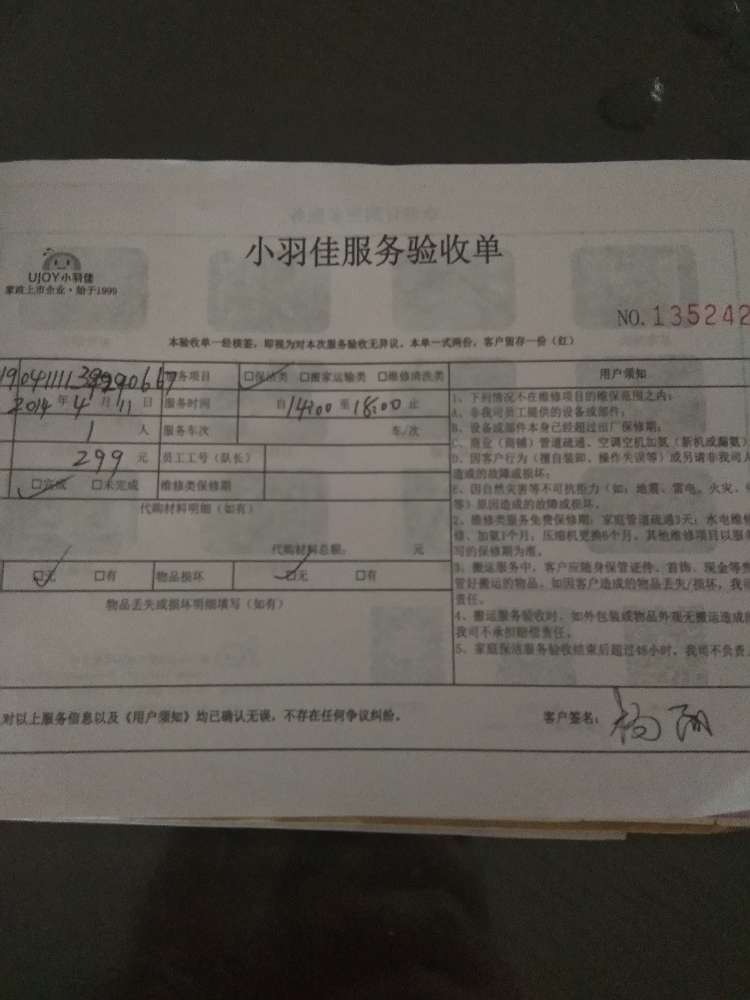 小羽佳服务验收单
UJOY小羽佳
家政上市企业·始于1999
NO.135242
本验收单一经核签，即视为对本次服务验收无异议。本单一式两份，客户留存一份（红）
务项目 □保洁类 □搬家运输类 □维修清洗类
年 4 月 11 日 服务时间 自 14:00 至 18:00 止
1 人 服务车次 车/次
299 元 员工工号（队长）
□完成 □未完成 维修类保修期
代购材料明细（如有）
代购材料总额： 元
□无 □有 物品损坏 □无 □有
物品丢失或损坏明细填写（如有）
用户须知
1、下列情况不在维修项目的维保范围之内：
A、非我司员工提供的设备或部件；
B、设备或部件本身已经超过出厂保修期；
C、商业（商铺）管道疏通、空调空机加氨（新机或漏氨）
D、因客户行为（擅自装卸、操作失误等）或另请非我司人
造成的故障或损坏；
E、因自然灾害等不可抗拒力（如：地震、雷电、火灾、
等）原因造成的故障或损坏。
2、维修类服务免费保修期：家庭管道疏通3天；水电维
修、加氨1个月，压缩机更换6个月，其他维修项目以服务
写的保修期为准。
3、搬运服务中，客户应随身保管证件、首饰、现金等
管好搬运的物品。如因客户造成的物品丢失/损坏，我
责任。
4、搬运服务验收时，如外包装或物品外观无搬运造成
我司不承担赔偿责任。
5、家庭保洁服务验收结束后超过48小时，我司不负责
对以上服务信息以及《用户须知》均已确认无误，不存在任何争议纠纷。
客户签名：